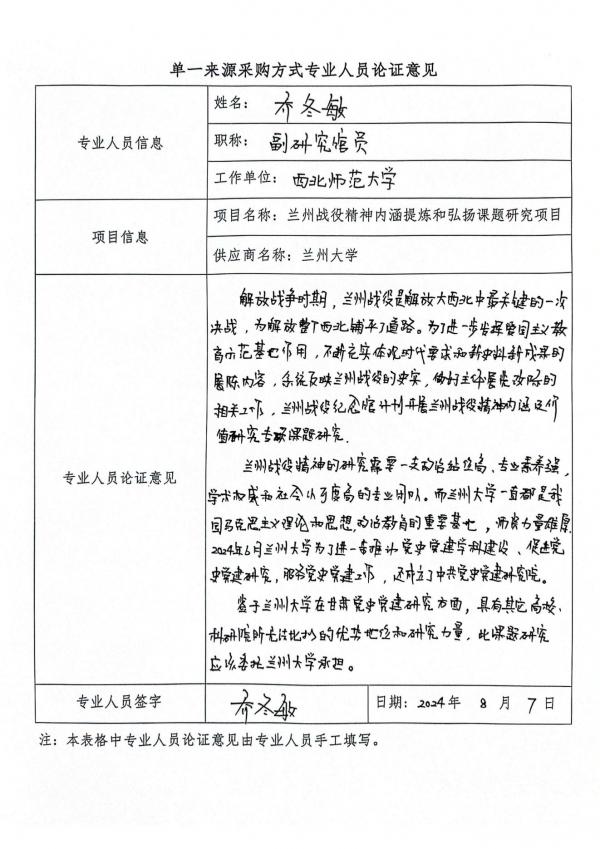 单一来源采购方式专业人员论证意见
专业人员信息
姓名：乔冬敏
职称：副研究馆员
工作单位：西北师范大学
项目信息
项目名称：兰州战役精神内涵提炼和弘扬课题研究项目
供应商名称：兰州大学
专业人员论证意见
解放战争时期，兰州战役是解放大西北中最关键的一次
决战，为解放整个西北铺平了道路。为了进一步发挥爱国主义教
育示范基地作用，不断充实体现时代要求和新史料新成果的
展陈内容，系统反映兰州战役的史实，做好主体展览改陈的
相关工作，兰州战役纪念馆计划开展兰州战役精神内涵及价
值研究专项课题研究.
兰州战役精神的研究需要一支政治站位高、专业素养强，
学术权威和社会认可度高的专业团队。而兰州大学一直都是我
国马克思主义理论和思想政治教育的重要基地，师资力量雄厚.
2024年6月兰州大学为了进一步推动党史党建学科建设、促进党
史党建研究，服务党史党建工作，还成立了中共党史党建研究院。
鉴于兰州大学在甘肃党史党建研究方面，具有其它高校、
科研院所无法比拟的优势地位和研究力量，此课题研究
应该委托兰州大学承担。
专业人员签字
乔冬敏
日期：2024年 8 月 7 日
注：本表格中专业人员论证意见由专业人员手工填写。